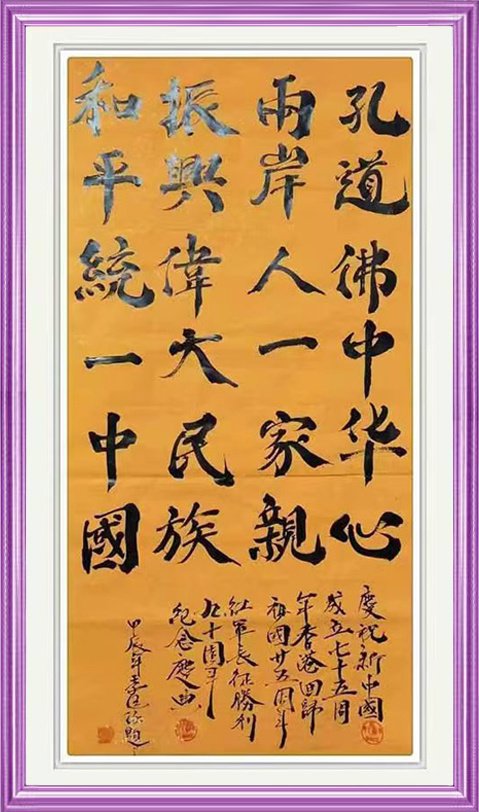 孔道佛中华心
兩岸人一家親
振興偉大民族
和平統一中國
慶祝新中國
成立七十五周
年香港回歸
祖國廿五周年
紅軍長征勝利
九十周年
紀念慶典
甲辰年王題